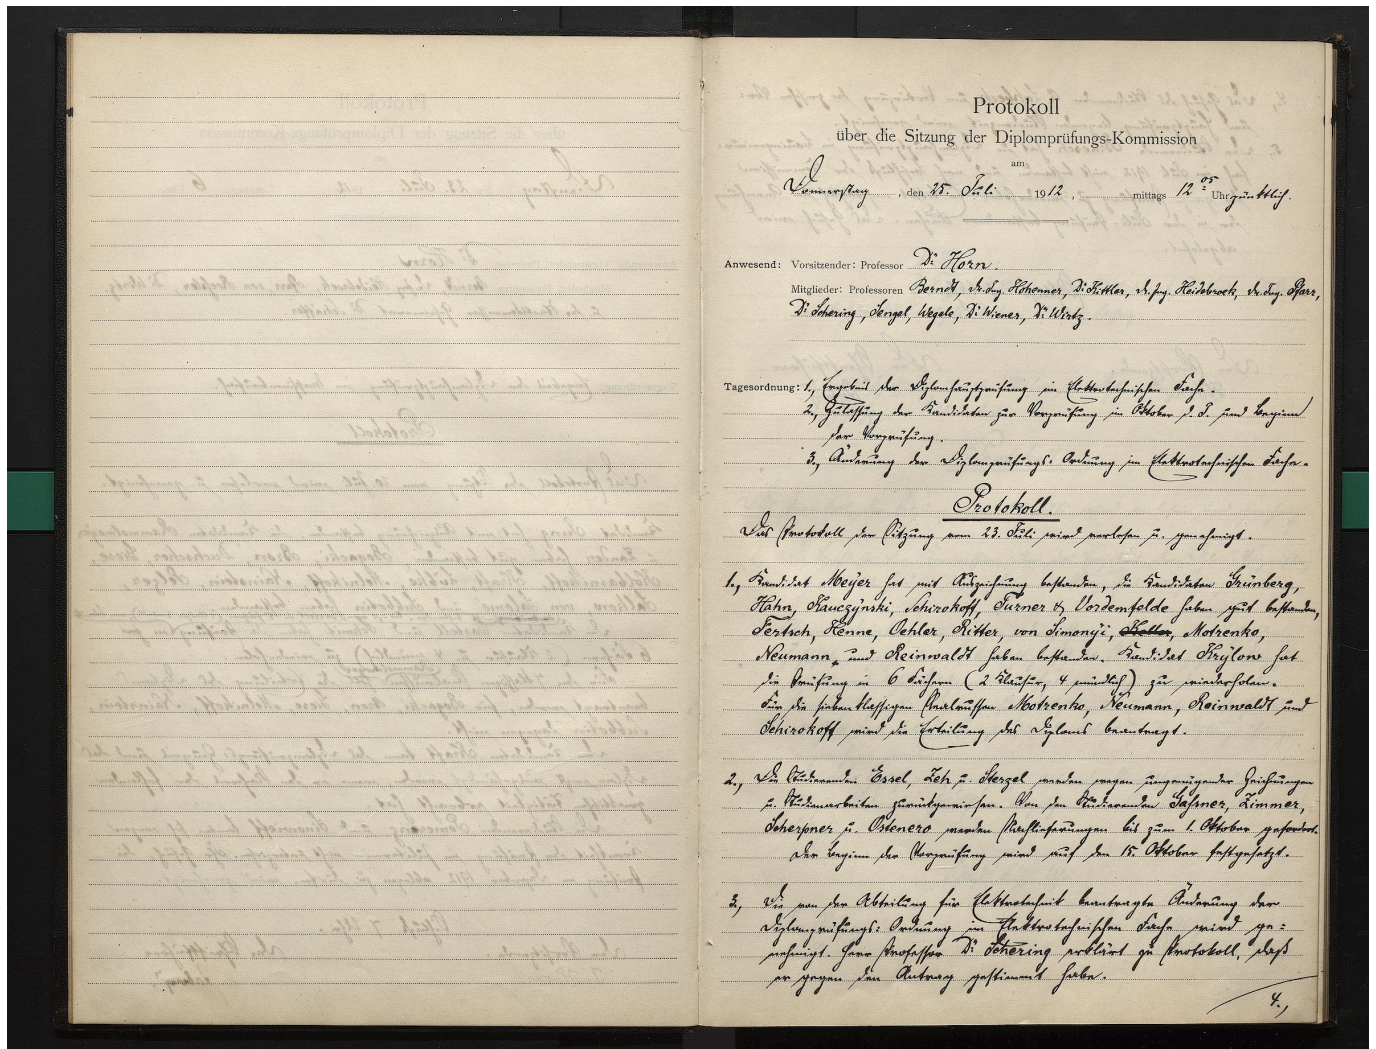 Protokoll
über die Sitzung der Diplomprüfungs-Kommission
am
Donnerstag, den 25. Juli 1912, mittags 12 05 Uhr pünktlich.
Anwesend: Vorsitzender: Professor Dr. Horn.
Mitglieder: Professoren Berndt, Dr. Ing. Hohenner, Dr. Kittler, Dr. Ing. Heidebroek, Dr. Ing. Pfarr,
Dr. Schering, Sengel, Wegele, Dr. Wiener, Dr. Wirtz.
Tagesordnung: 1., Ergebnis der Diplomhauptprüfung im Elektrotechnischen Fache.
2., Zulassung der Kandidaten zur Vorprüfung im Oktober d. J. und Beginn
der Vorprüfung.
3., Änderung der Diplomprüfungs-Ordnung im Elektrotechnischen Fache.
Protokoll.
Das Protokoll der Sitzung vom 23. Juli wird verlesen u. genehmigt.
1., Kandidat Meyer hat mit Auszeichnung bestanden, die Kandidaten Grünberg,
Hahn, Kauczynski, Schirokoff, Turner & Vordemfelde haben gut bestanden,
Fertsch, Henne, Oehler, Ritter, von Simonyi, Keller, Motrenko,
Neumann, und Reinwaldt haben bestanden. Kandidat Krylow hat
die Prüfung in 6 Fächern (2 Klausur, 4 mündlich) zu wiederholen.
Für die siebenklassigen Realrussen Motrenko, Neumann, Reinwaldt und
Schirokoff wird die Erteilung des Diploms beantragt.
2., Die Studierenden Essel, Zeh u. Sterzel werden wegen ungenügender Zeichnungen
u. Studienarbeiten zurückgewiesen. Von den Studierenden Gassner, Zimmer,
Scherpner u. Ostenero werden Nachlieferungen bis zum 1. Oktober gefordert.
Der Beginn der Vorprüfung wird auf den 15. Oktober festgesetzt.
3., Die von der Abteilung für Elektrotechnik beantragte Änderung der
Diplomprüfungs-Ordnung im Elektrotechnischen Fache wird ge-
nehmigt. Herr Professor Dr. Schering erklärt zu Protokoll, daß
er gegen den Antrag gestimmt habe.
4.,